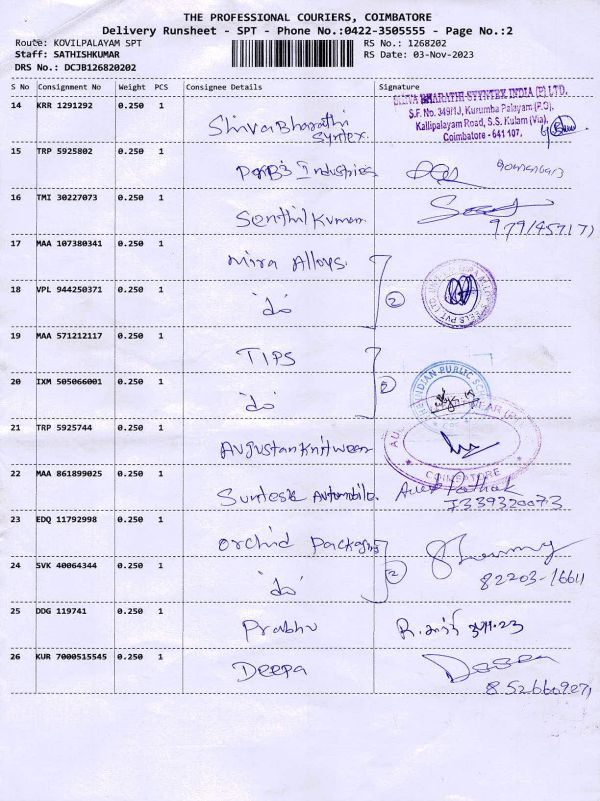 THE PROFESSIONAL COURIERS, COIMBATORE
Delivery Runsheet - SPT - Phone No.:0422-3505555 - Page No.:2
Route: KOVILPALAYAM SPT
RS No.: 1268202
Staff: SATHISHKUMAR
RS Date: 03-Nov-2023
DRS No.: DCJB126820202
S No Consignment No Weight PCS Consignee Details Signature
14 KRR 1291292 0.250 1 ShivaBharathi Syntex.
SHIVA BHARATHI SYNTEX INDIA (P) LTD.
S.F. No. 349/1J, Kurumba Palayam (P.O),
Kalipalayam Road, S.S. Kulam (Via),
Coimbatore - 641 107.
15 TRP 5925802 0.250 1 Industries
16 TMI 30227073 0.250 1 Senthil Kumar
17 MAA 107380341 0.250 1 Mira Alloys.
18 VPL 944250371 0.250 1 'do' 2
19 MAA 571212117 0.250 1 TIPS
20 IXM 505066001 0.250 1 'do' 2
INDIAN PUBLIC
21 TRP 5925744 0.250 1 Augustan Knitwear
COIMBATORE
22 MAA 861899025 0.250 1 Suntesk Automobile. Pathak
7339320073
23 EDQ 11792998 0.250 1 Orchid Packagng
24 SVK 40064344 0.250 1 'do' 2
82203-16611
25 DDG 119741 0.250 1 Prabhu R. 3/11.23
26 KUR 7000515545 0.250 1 Deepa Deepa
8526609271